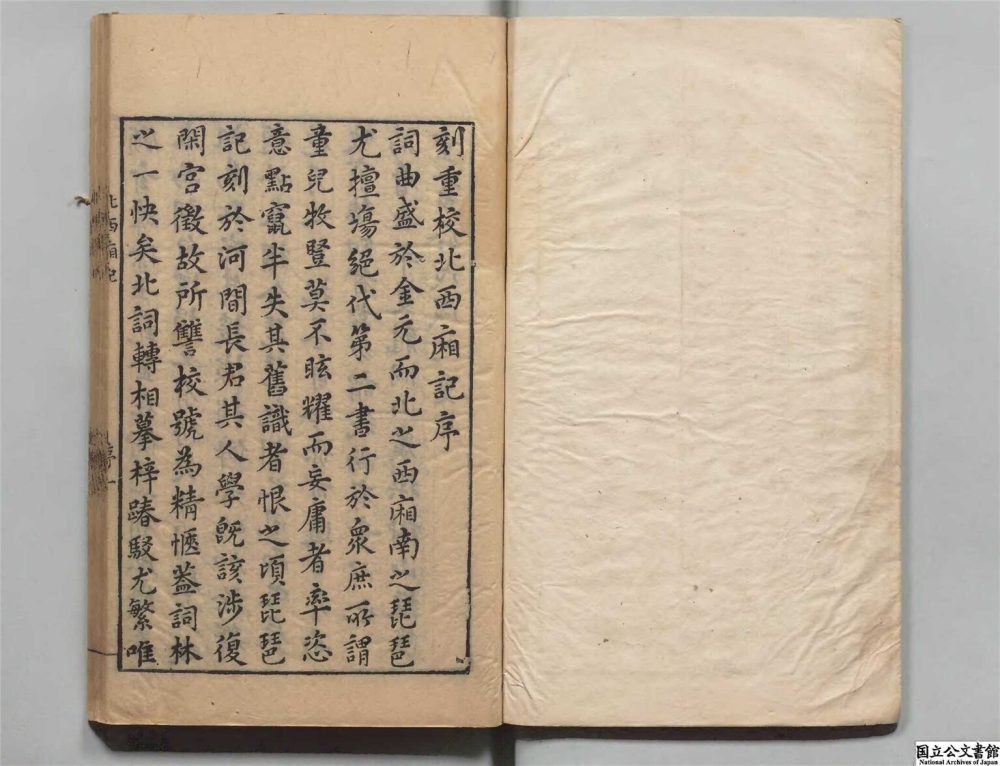 刻重校北西廂記序
詞曲盛於金元而北之西廂南之琵琶
尤擅塲絕代第二書行於衆庶所謂
童兒牧豎莫不眩耀而妄庸者率恣
意點竄半失其舊識者恨之頃琵琶
記刻於河間長君其人學既該涉復
閑宮徵故所讐校號為精愜葢詞林
之一快矣北詞轉相摹梓踳駁尤繁唯
北西廂記
序
一
国立公文書館
National Archives of Japan